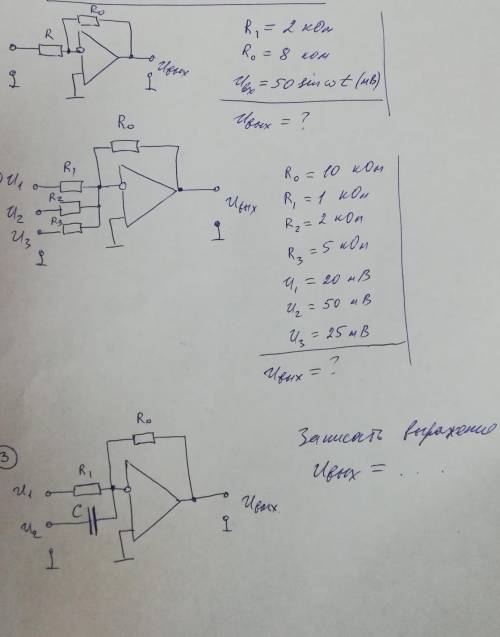 R
R₀
Uвых
R₁ = 2 кОм
R₀ = 8 ком
Uвх = 50 sin ωt (мВ)
Uвых = ?
U₁
R₁
R₀
U₂
R₂
U₃
R₃
Uвых
R₀ = 10 кОм
R₁ = 1 кОм
R₂ = 2 кОм
R₃ = 5 кОм
U₁ = 20 мВ
U₂ = 50 мВ
U₃ = 25 мВ
Uвых = ?
3
U₁
R₁
R₀
U₂
C
Uвых
Записать выражение
Uвых = ....